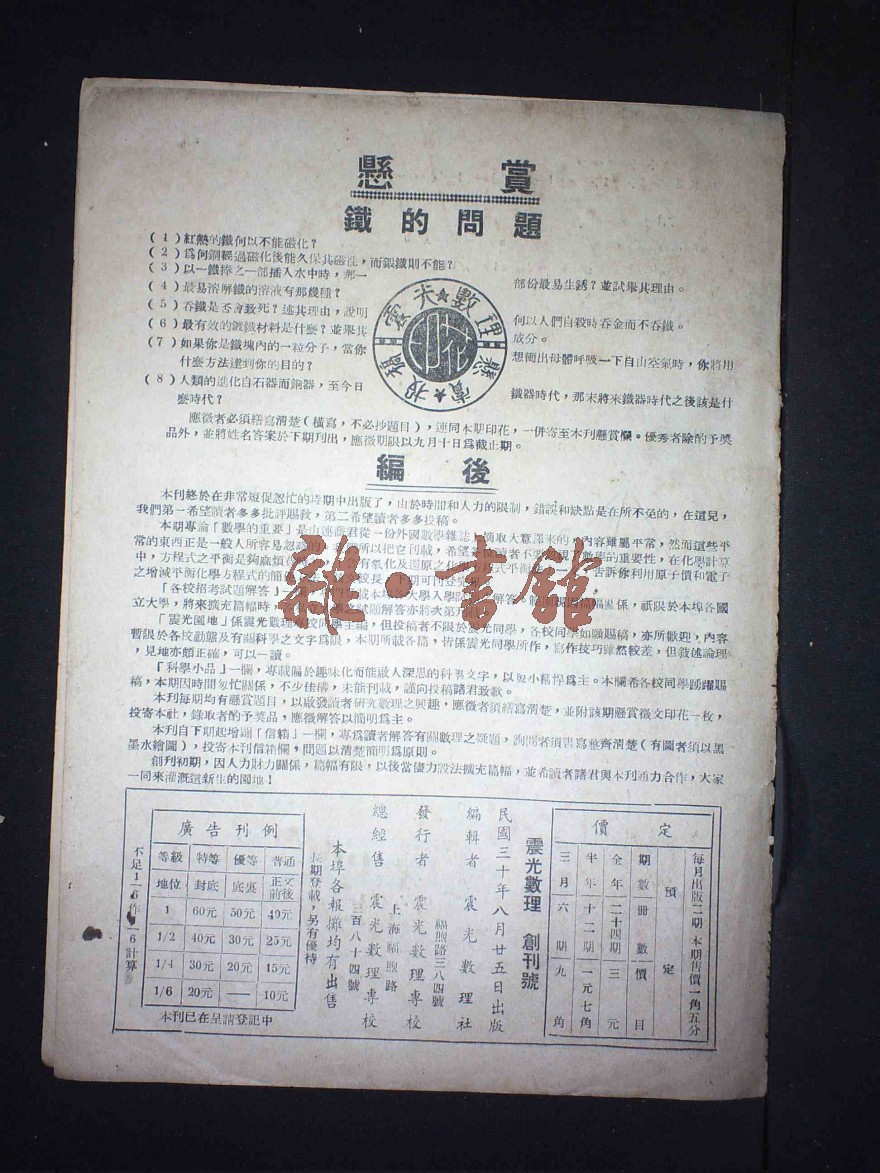 懸賞
鐵的問題
(1)紅熱的鐵何以不能磁化?
(2)爲何鋼經過磁化後能久保其磁性,而鍛鐵則不能?
(3)以一鐵棒之一部插入水中時,那一部份最易生銹?並試舉其理由。
(4)最易溶解鐵的溶液有那幾種?
(5)吞鐵是否會致死?述其理由,說明何以人們自殺時吞金而不吞鐵。
(6)最有效的鍍鐵材料是什麼?並舉其成分。
(7)如果你是鐵塊內的一粒分子,當你想衝出母體呼吸一下自由空氣時,你將用
什麼方法達到你的目的?
(8)人類的進化自石器而銅器,至今日鐵器時代,那末將來鐵器時代之後該是什
麼時代?
震光★數理
懸賞★投稿
印花
應徵者必須繕寫清楚(橫寫,不必抄題目),連同本期印花,一併寄至本刊懸賞欄。優秀者除酌予獎
品外,並將姓名答案於下期刊出,應徵期限以九月十日爲截止期。
編後
本刊終於在非常短促怱忙的時期中出版了,由於時間和人力的限制,錯誤和缺點是在所不免的,在這兒,
我們第一希望讀者多多批評賜敎,第二希望讀者多多投稿。
本期專論「數學的重要」是山連喬君從一份外國數學雜誌上摘取大意譯來的,內容雖屬平常,然而這些平
常的東西正是一般人所容易忽
所以把它刊載,希望
的重要性,在化學計算
中,方程式之平衡是夠麻煩
有氧化及還原之化
方程式平衡
告訴你利用原子價和電子
之增減平衡化學方程式的簡
「各校招考試題解答」一
載本埠各大學入學
解答
關係,祇限於本埠各國
立大學,將來擴充篇幅時,
試題解答亦將次第
「震光園地」係震光數理專校同學主編,但投稿者不限於震光同學,各校同學如願賜稿,亦所歡迎,內容
暫限於各校動態及有關科學之文字爲限,本期所載各篇,皆係震光同學所作,寫作技巧雖然較差,但敘述論理
,見地亦頗正確,可以一讀。
「科學小品」一欄,專載偏於趣味化而能啟人深思的科學文字,以短小精悍爲主。本欄希各校同學踴躍賜
稿,本期因時間匆忙關係,不少佳構,未能刊載,謹向投稿諸君致歉。
本刊每期均有懸賞題目,以啟發讀者研究數理之興趣,應徵者須繕寫清楚,並附該期懸賞徵文印花一枚,
投寄本社,錄取者酌予獎品,應徵解答以簡明爲主。
本刊自下期起增闢「信箱」一欄,專爲讀者解答有關數理之疑題,詢問者須書寫整齊清楚(有圖者須以黑
墨水繪圖),投寄本刊信箱欄,問題以清楚簡明爲原則。
創刊初期,因人力財力關係,篇幅有限,以後當儘力設法擴充篇幅,並希讀者諸君與本刊通力合作,大家
一同來灌漑這新生的園地!
雜·書館
定價
每月出版二期 本期售價一角五分
預定
期數 冊數 價目
全年 二十四期 三元
半年 十二期 一元七角
三月 六期 九角
震光數理 創刊號
民國三十年八月廿五日出版
編輯者 震光數理社
福煦路三八四號
發行者 震光數理專校
上海福煦路
總經售 震光數理專校
三百八十四號
本埠各報攤均有出售
長期登載,另有優待
廣告刊例
等級 特等 優等 普通
地位 封底 底裏 正文前後
1 60元 50元 40元
1/2 40元 30元 25元
1/4 30元 20元 15元
1/6 20元 —— 10元
不足1—6作1—6計算
本刊已在呈請登記中